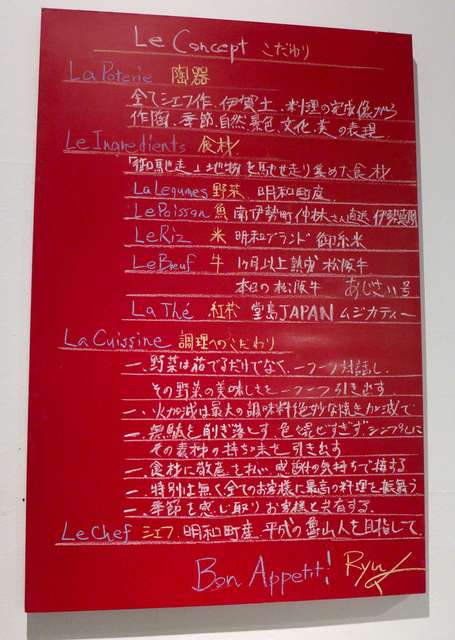 Le Concept こだわり
La Poterie 陶器
全てシェフ作、伊賀土、料理の完成像から
作陶、季節、自然、景色、文化、美の表現
Le Ingredients 食材
「御馳走」地物を馳せ走り集めた食材
La Legumes 野菜 明和町産
Le Poisson 魚 南伊勢町 仲林さん直送 伊勢真鯛
Le Riz 米 明和ブランド 御糸米
Le Bœuf 牛 1ヶ月以上熟成 松阪牛
本日の松阪牛 あじさい号
La Thé 紅茶 堂島JAPAN ムジカティー
La Cuissine 調理へのこだわり
一、野菜は茹でるだけでなく、一つ一つ対話し、
その野菜の美味しさを一つ一つ引き出す
一、火加減は最大の調味料 絶妙な焼き加減で
一、無駄を削ぎ落とす 色々混ぜすぎず、シンプルに
その素材の持ち味を引き出す
一、食材に敬意を払い、感謝の気持ちで捧げる
一、特別は無く全てのお客様に最高の料理を振舞う
一、季節を感じ取りお客様と共有する
Le Chef シェフ 明和町産、平成の魯山人を目指して
Bon Appetit! Ryu